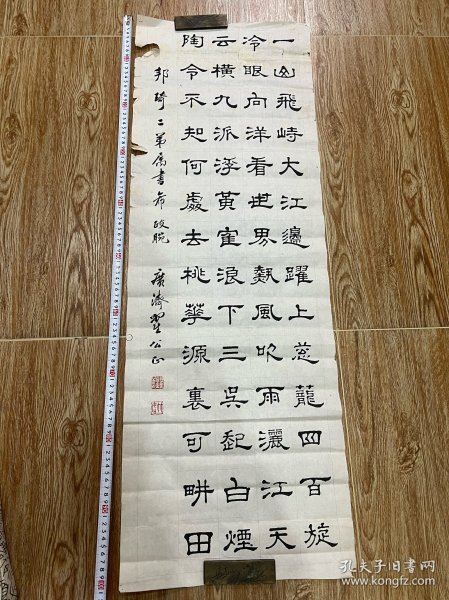 一山飛峙大江邊躍上蔥蘢四百旋
冷眼向洋看世界熱風吹雨灑江天
云橫九派浮黃隺浪下三吳起白煙
陶令不知何處去桃華源裏可畊田
邦琦二弟屬書希政腕 廣濟
孔夫子旧书网
https://www.kongfz.com